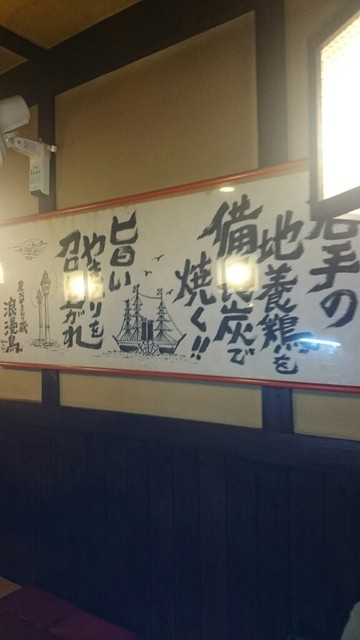 岩手の
地養鶏を
備長炭で
焼く!!
旨い
やき鳥を
召上がれ
浪漫鳥